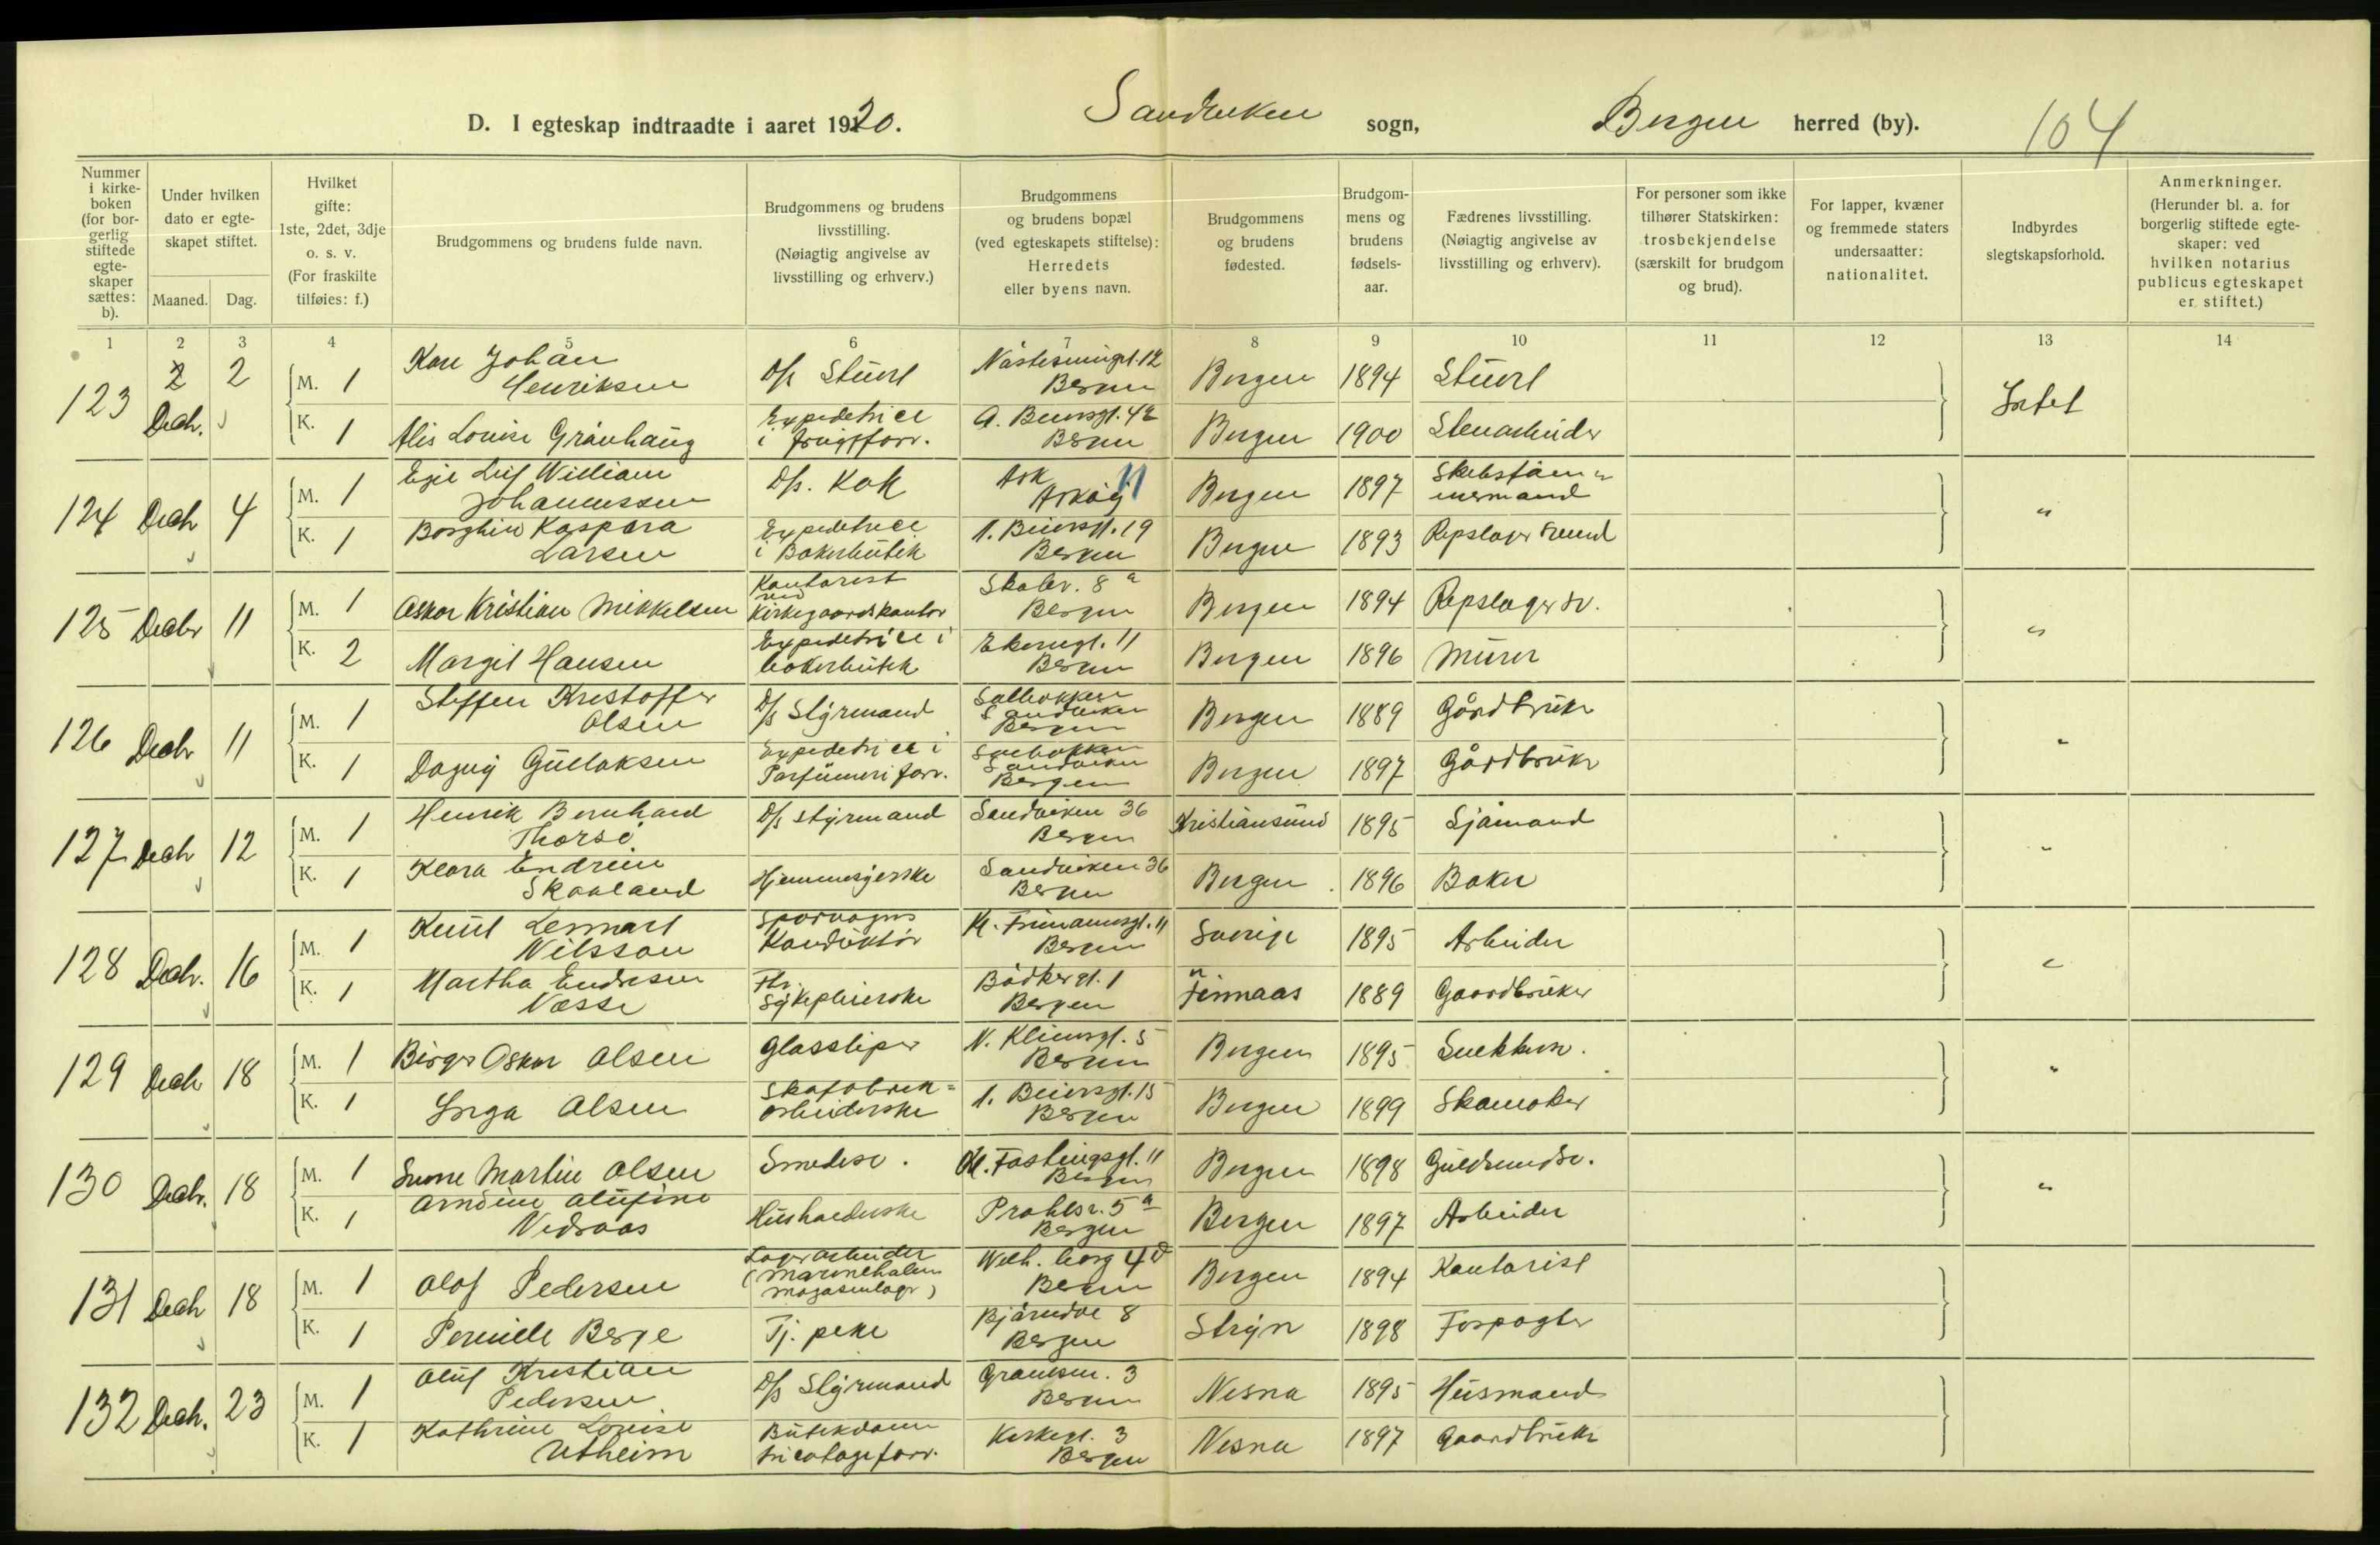 D. I egteskap indtraadte i aaret 1920. Sandviken sogn, Bergen herred (by). 104
Nummer i kirke-boken (for bor-gerlig stiftede egte-skaper sættes: b).
Under hvilken dato er egte-skapet stiftet.
Maaned. Dag.
Hvilket gifte: 1ste, 2det, 3dje o. s. v. (For fraskilte tilføies: f.)
Brudgommens og brudens fulde navn.
Brudgommens og brudens livsstilling. (Nøiagtig angivelse av livsstilling og erhverv.)
Brudgommens og brudens bopæl (ved egteskapets stiftelse): Herredets eller byens navn.
Brudgommens og brudens fødested.
Brudgom-mens og brudens fødsels-aar.
Fædrenes livsstilling. (Nøiagtig angivelse av livsstilling og erhverv).
For personer som ikke tilhører Statskirken: trosbekjendelse (særskilt for brudgom og brud).
For lapper, kvæner og fremmede staters undersaatter: nationalitet.
Indbyrdes slegtskapsforhold.
Anmerkninger. (Herunder bl. a. for borgerlig stiftede egte-skaper: ved hvilken notarius publicus egteskapet er stiftet.)
1 2 3 4 5 6 7 8 9 10 11 12 13 14
123 Decbr. 2 M. 1 Karl Johan Henriksen D/s Stuert Bergen Bergen 1894 Stuert Intet
K. 1 Alis Louise Gravhaug Expeditrice i frugtforr. 42 Bergen Bergen 1900 Stenarbeider
124 Decbr 4 M. 1 Egil Leif William Johannessen D/s. Kok Ask Askøy 11 Bergen 1897 "
K. 1 Borghild Kaspara Larsen Expeditrice i Bakerbutik 19 Bergen Bergen 1893 Repslager
125 Decbr 11 M. 1 Oskar Kristian Mikkelsen Kontorist ved Kirkegaardskontor Skolev. 8 a Bergen Bergen 1894 Repslager "
K. 2 Margit Hansen Expeditrice i bakerbutik Ekeregt. 11 Bergen Bergen 1896 Murer
126 Decbr 11 M. 1 Steffen Kristoffer Olsen D/s Styrmand Sandviken Bergen Bergen 1889 Gårdbruker "
K. 1 Dagny Gullaksen Expeditrice i Parfumeriforr. Sandviken Bergen Bergen 1897 Gårdbruker
127 Decbr 12 M. 1 Henrik Bernhard D/s styrmand Sandviken 36 Bergen Kristiansund 1895 Sjømand "
K. 1 Klara Endrine Skaaland Hjemmesjerske Sandviken 36 Bergen Bergen 1896 Baker
128 Decbr. 16 M. 1 Knut Lennart Nilsson Sporvogns Konduktør 11 Bergen Sverige 1895 Arbeider "
K. 1 Martha Endresen Næsse Sykepleierske Bødkergt. 1 Bergen Finnaas 1889 Gaardbruker
129 Decbr 18 M. 1 Birger Oskar Olsen Glassliper N. Klimsgt. 5 Bergen Bergen 1895 Snekker "
K. 1 Inga Olsen Skofabrik= arbeiderske 15 Bergen Bergen 1899 Skomaker
130 Decbr. 18 M. 1 Martin Olsen Smedsv. Kl. Fastingsgt. 11 Bergen Bergen 1898 Guldsmedsv. "
K. 1 Vedraas Husholderske 5 a Bergen Bergen 1897 Arbeider
131 Decbr 18 M. 1 Olaf Pedersen Lagerarbeider (Marineholms magasinlager) Bergen Bergen 1894 Kontorist
K. 1 Pernille Berge Tj. pike 8 Bergen Stryn 1898 Forpagter
132 Decbr. 23 M. 1 Oluf Kristian Pedersen D/s Styrmand 3 Bergen Nesna 1895 Husmand
K. 1 Kathrine Louise Utheim Butikdame tricotageforr. Kirkegt. 3 Bergen Nesna 1897 Gaardbruker